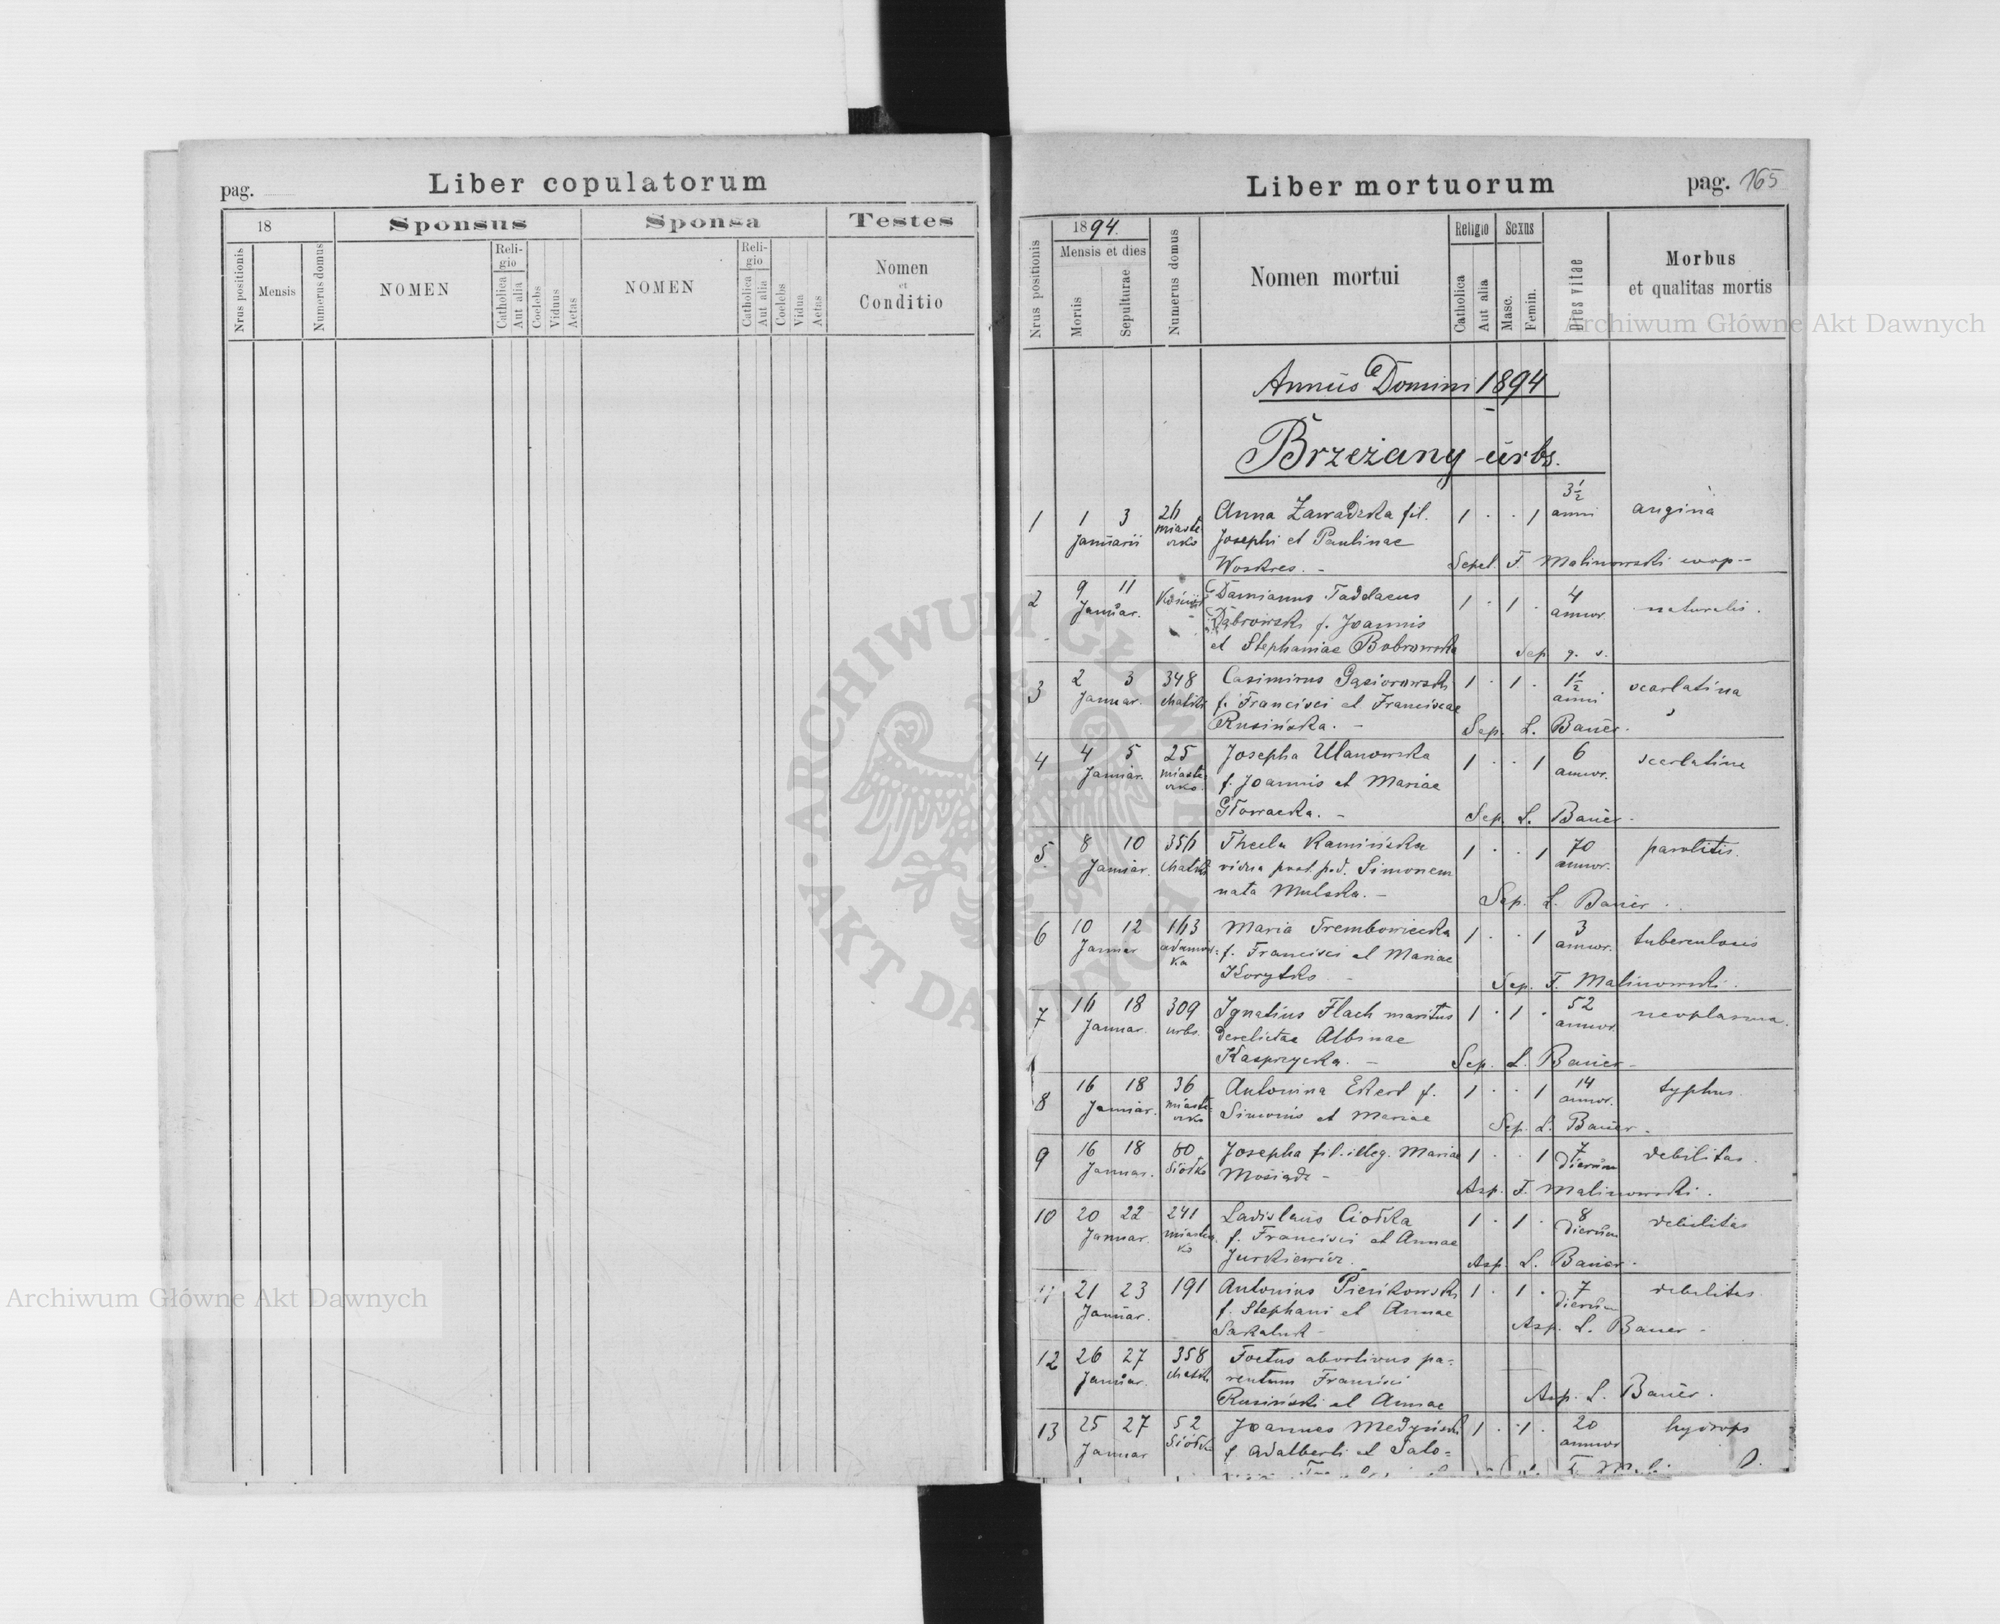 pag.
Liber copulatorum
18
Sponsus
Sponsa
Testes
Nrus positionis
Mensis
Numerus domus
NOMEN
Reli-
gio
Catholica
Aut alia
Coelebs
Viduus
Aetas
NOMEN
Reli-
gio
Catholica
Aut alia
Coelebs
Vidua
Aetas
Nomen
et
Conditio
Liber mortuorum
pag. 165
Nrus positionis
1894.
Mensis et dies
Mortis
Sepulturae
Numerus domus
Nomen mortui
Religio
Catholica
Aut alia
Sexus
Masc.
Femin.
Dies vitae
Morbus
et qualitas mortis
Annus Domini 1894
Brzeżany urbs.
1 1 3 Anna Zawadzka fil. 1 . . 1 3½ anni angina
Januarii miaste czko Josephi et Paulinae
Woskres. - Sepel. F. Malinowski coop.
2 9 11 Damianus Taddaeus 1 . 1 . 4 annor naturalis.
Januar. Dąbrowski f. Joannis
et Stephaniae Bobrowska Sep. q. s.
3 2 3 348 Casimirus Gąsiorowski 1 . 1 . 1½ anni scarlatina
Januar. f. Francisci et Franciscae
Rusińska. - Sep. L. Bauer.
4 4 5 25 Josepha Ulanowska 1 . . 1 6 annor. scarlatina
Januar. miaste czko. f. Joannis et Mariae
Głowacka. - Sep. L. Bauer.
5 8 10 Thecla Kamińska 1 . . 1 70 annor. parotitis.
Januar. vidua post p.d. Simonem
nata Mulska. - Sep. L. Bauer.
6 10 12 Maria Trembowiecka 1 . . 1 3 annor. tuberculosis
Januar adamów- ka f. Francisci et Mariae
Korytko - Sep. F. Malinowski.
7 18 309 Ignatius Flach maritus 1 . 1 . 52 annor. neoplasma.
Januar. urbs. derelictae Albinae
Kasprzycka. - Sep. L. Bauer -
8 16 18 36 Antonina Ekert f. 1 . . 1 14 annor. typhus.
Januar. miaste- czko Simonis et Mariae Sep. L. Bauer.
9 16 18 80 Josepha fil. illeg. Mariae 1 . . 1 7 dierum debilitas.
Januar. Siółko Mosiądz - Asp. F. Malinowski.
10 20 22 241 Ladislaus Ciołka 1 . 1 . 8 dierum debilitas
Januar. miastecz ko f. Francisci et Annae
Jurkiewicz. Asp. L. Bauer.
11 21 23 191 Antonius Pieńkowski 1 . 1 . 7 dierum debilitas.
Januar. f. Stephani et Annae
Sakaluk - Asp. L. Bauer -
12 26 27 358 Foetus abortivus pa-
Januar. rentum Francisci
Rusiński et Annae Asp. L. Bauer.
13 25 27 52 Joannes Medyński 1 . 1 . 20 annor hydrops
Januar Siółko f. Adalberti et Salo-
Archiwum Główne Akt Dawnych
Archiwum Główne Akt Dawnych
ARCHIWUM GŁÓWNE AKT DAWNYCH